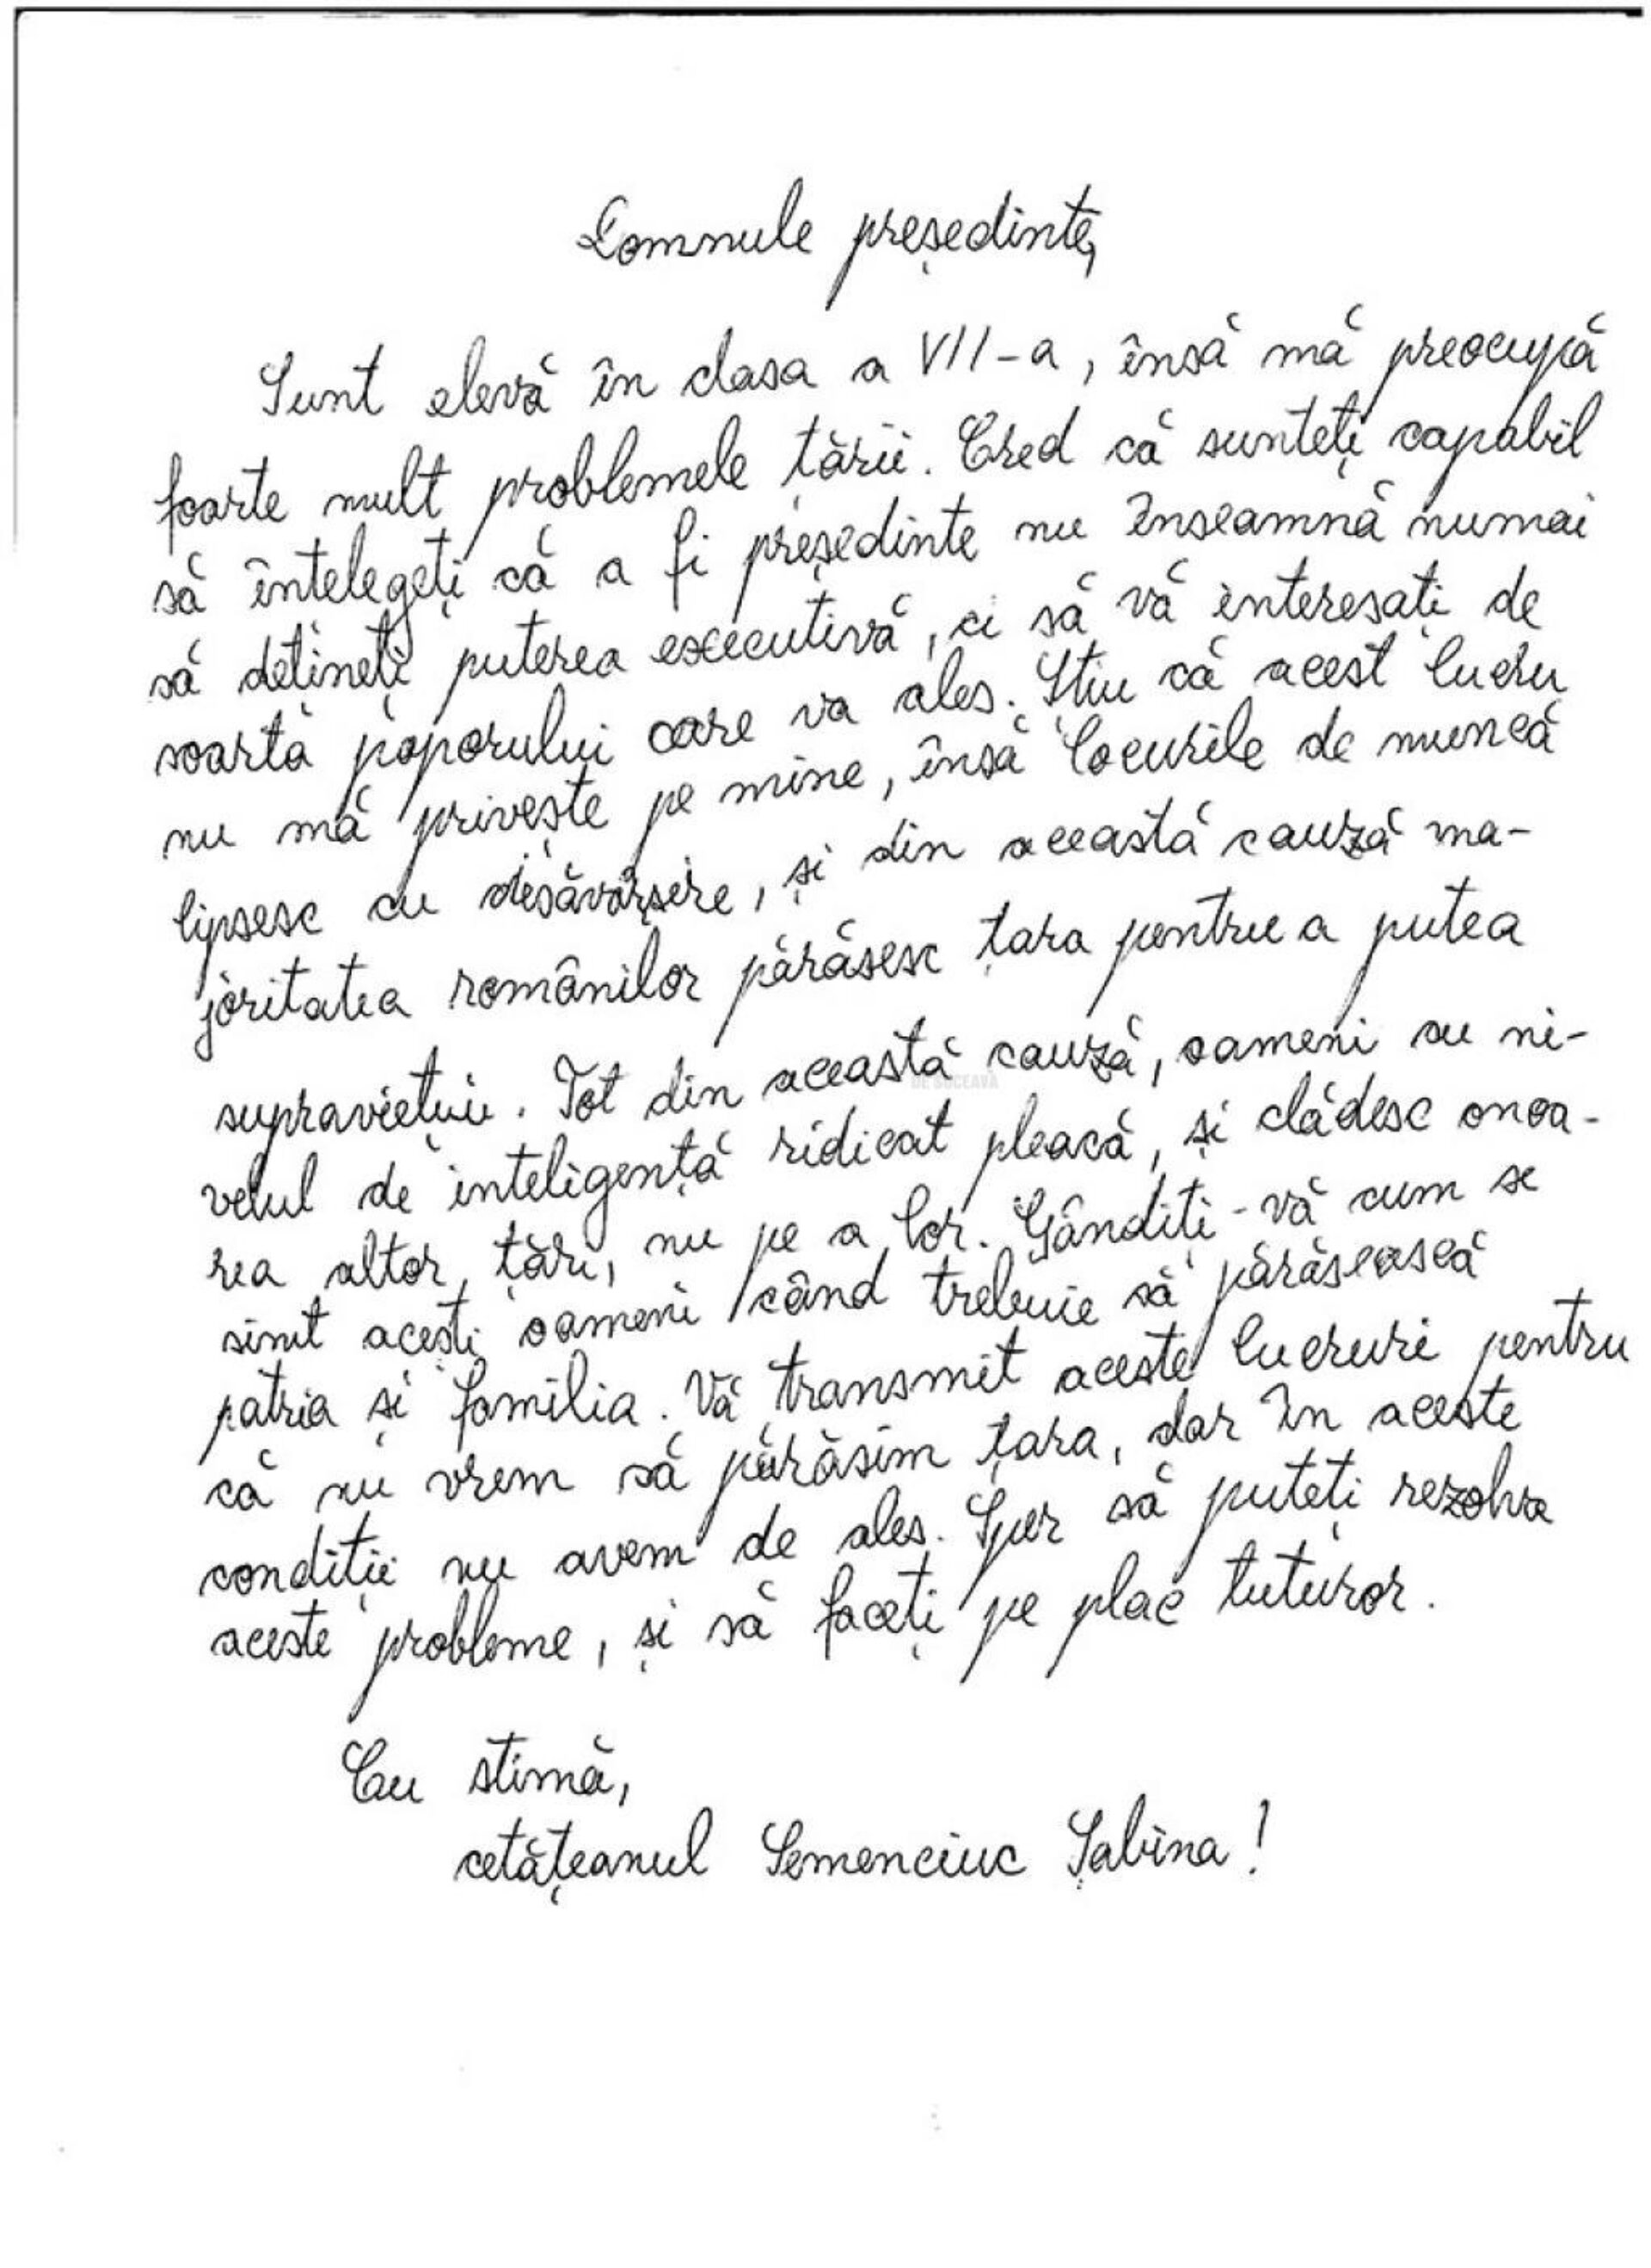 Domnule președinte,
Sunt elevă în clasa a VII-a, însă mă preocupă
foarte mult problemele țării. Cred că sunteți capabil
să înțelegeți că a fi președinte nu înseamnă numai
să dețineți puterea executivă, ci să vă interesați de
soarta poporului care va ales. Știu că acest lucru
nu mă privește pe mine, însă locurile de muncă
lipsesc cu desăvârșire, și din această cauză ma-
joritatea românilor părăsesc țara pentru a putea
supraviețui. Tot din această cauză, oameni cu ni-
velul de inteligență ridicat pleacă, și clădesc onoa-
rea altor țări, nu pe a lor. Gândiți-vă cum se
simt acești oameni când trebuie să părăsească
patria și familia. Vă transmit aceste lucruri pentru
că nu vrem să părăsim țara, dar în aceste
condiții nu avem de ales. Sper să puteți rezolva
aceste probleme, și să faceți pe plac tuturor.
Cu stimă,
cetățeanul Semenciuc Sabina!